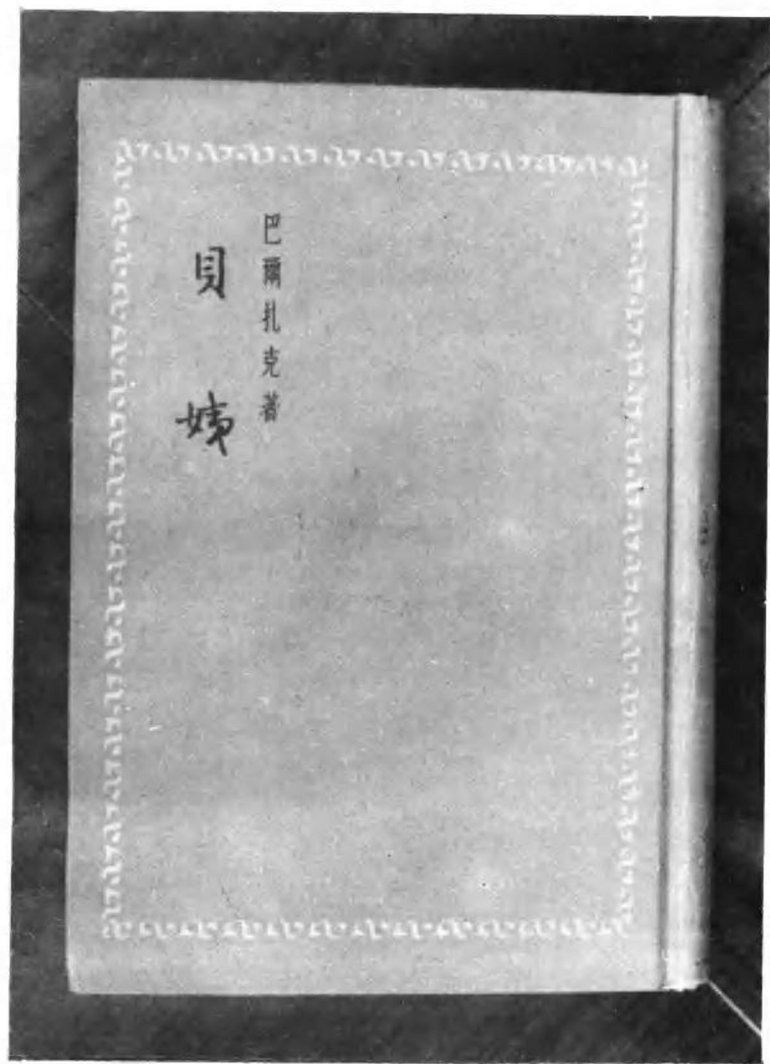 巴爾扎克著
貝姨